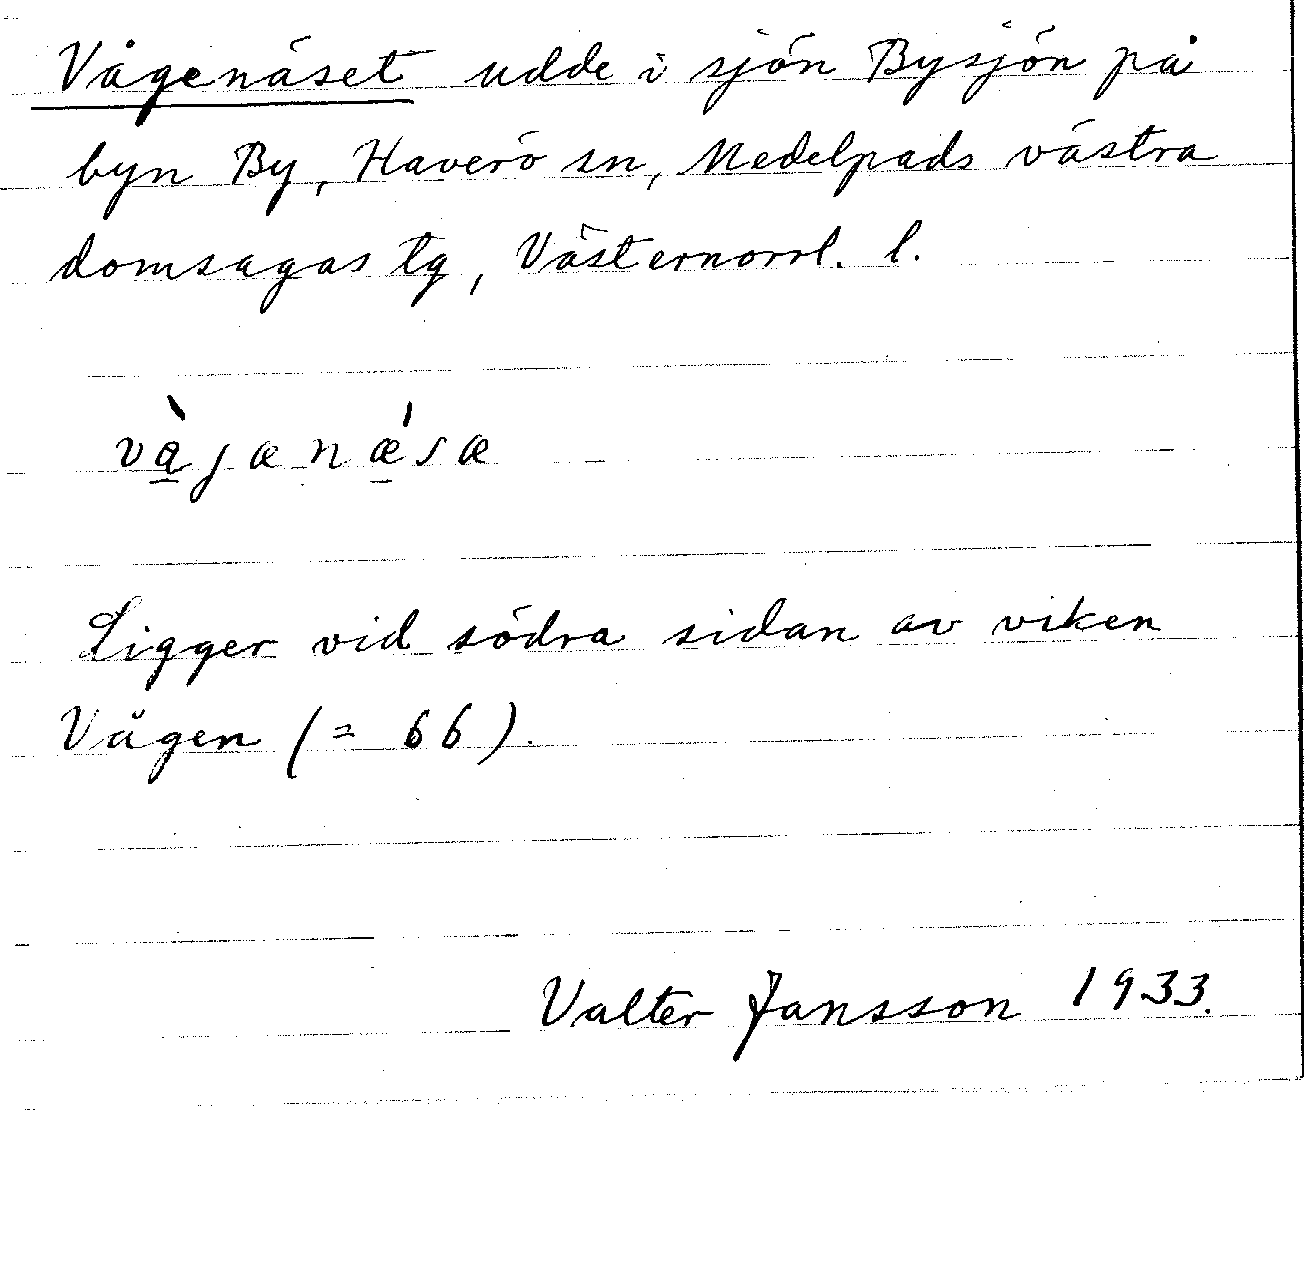 Vågenäset udde i sjön Bysjön på
byn By, Haverö sn, Medelpads västra
domsagas tg, Västernorrl. l.
và̱jænǽ̱sæ
Ligger vid södra sidan av viken
Vågen (= 66).
Valter Jansson 1933.